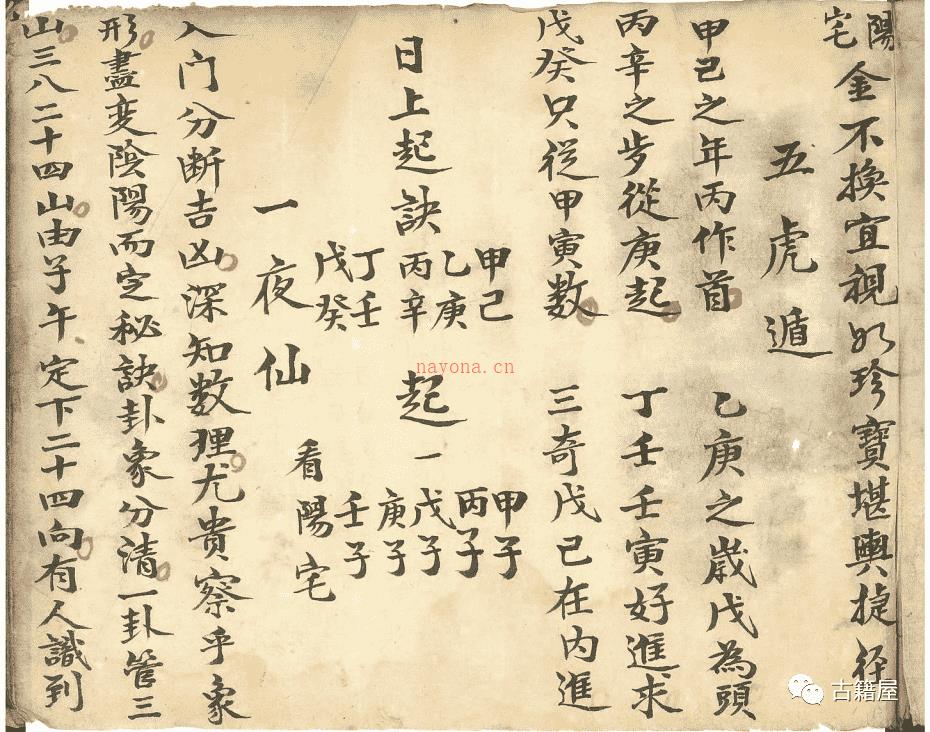 陽宅金不換宜視如珍寶堪輿捷徑
五虎遁
甲己之年丙作首 乙庚之歲戊為頭
丙辛之步從庚起 丁壬壬寅好進求
戊癸只從甲寅數 三奇戊己在內進
日上起訣
甲己
乙庚
丙辛
丁壬
戊癸
起一
甲子
丙子
戊子
庚子
壬子
一夜仙 看陽宅
入门分断吉凶深知数理尤貴察乎象
形盡变陰陽而定秘訣卦象分清一卦管三
山三八二十四山由子午定下二十四向有人識到
nayona.cn
古籍屋